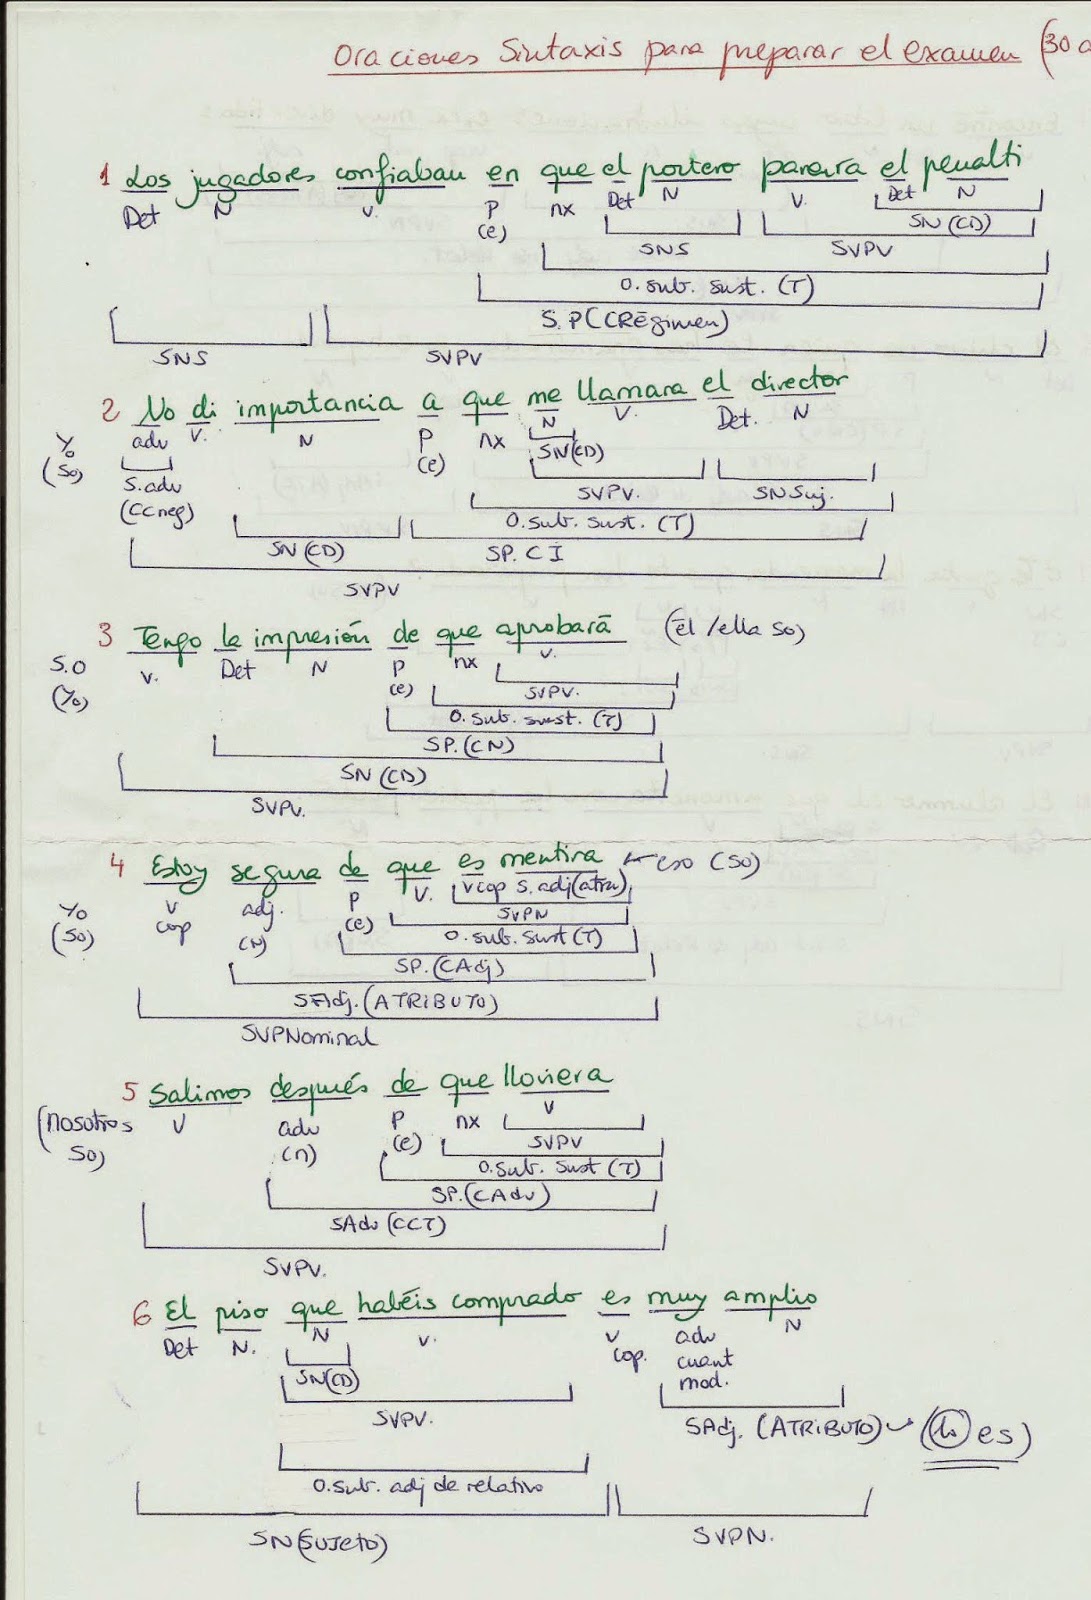 Oraciones Sintaxis para preparar el examen (30
1 Los jugadores confiaban en que el portero parara el penalti
Det N v. P nx Det N v. Det N
(e) SN (CD)
SNS SVPV
O. sub. sust. (T)
S.P (CRégimen)
SNS SVPV
2 No di importancia a que me llamara el director
Yo adv V. N P nx N V. Det. N
(SO) (e) SN(CD)
S.adv SVPV. SNSuj.
(CCneg) O.sub. sust. (T)
SN (CD) SP. CI
SVPV
3 Tengo la impresión de que aprobará (él/ella SO)
S.O v. Det N P nx v.
(Yo) (e) SVPV.
O. sub. sust. (T)
SP. (CN)
SN (CD)
SVPV.
4 Estoy segura de que es mentira ← eso (SO)
Yo v adj. P V. vcop s. adj(atru)
(SO) cop (N) (e) SVPN
O. sub. sust (T)
SP. (CAdj)
SAdj. (ATRIBUTO)
SVPNominal
5 Salimos después de que lloviera
(nosotros V adv P nx V
SO) (n) (e) SVPV
O.sub. sust (T)
SP. (CAdv)
SAdv (CCT)
SVPV.
6 El piso que habéis comprado es muy amplio
Det N. N v. v adv N
cop. cuant
SN(CD) mod.
SVPV. SAdj. (ATRIBUTO) (lo es)
O.sub. adj de relativo
SN (SUJETO) SVPN.